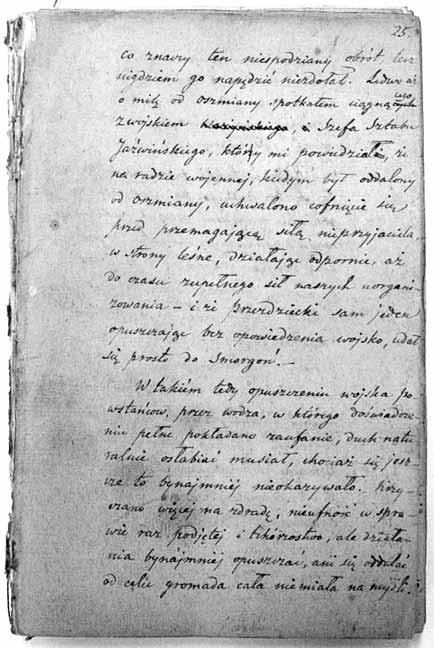 25.
co znaczy ten niespodziany obrót, lecz
nigdziem go napędzić niezdołał. Ledwo aż
o milę od Oszmiany spotkałem ciągnącego
z wojskiem i Szefa Sztabu
Jaźwińskiego, który mi powiedział, iż
na radzie wojennej, kiedym był oddalony
od Oszmiany, uchwalono cofnięcie się
przed przemagającą siłą nieprzyjaciela
w strony leśne, działając odpornie, aż
do czasu zupełnego sił naszych uorgani-
zowania – i iż Przezdziecki sam jeden
opuszczając bez opowiedzenia wojsko, udał
się prosto do Smorgoń. –
W takiém tedy opuszczeniu wojska po-
wstańców, przez wodza, w którego doświadcze-
niu pełne pokładano zaufanie, duch natu-
ralnie osłabiać musiał, chociaż się jesz-
cze to bynajmniej nieokazywało. Krzy-
czano więcej na zdradę, nieufność w spra-
wie raz podjętej i tchórzostwo, ale działa-
nia bynajmniej opuszczać, ani się oddalać
od celu gromada cała nie miała na myśli.